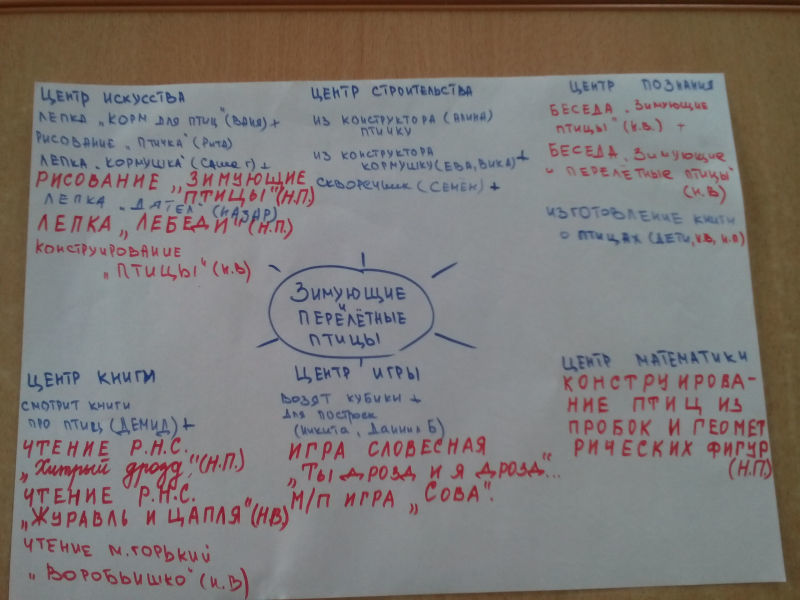 ЦЕНТР ИСКУССТВА
ЛЕПКА „КОРМ ДЛЯ ПТИЦ" (ВАНЯ) +
РИСОВАНИЕ „ПТИЧКА" (РИТА)
ЛЕПКА „КОРМУШКА" (САША Г) +
РИСОВАНИЕ „ЗИМУЮЩИЕ
ПТИЦЫ" (Н.П.)
ЛЕПКА „ДЯТЕЛ" (НАЗАР)
ЛЕПКА „ЛЕБЕДИ" (Н.П.)
КОНСТРУИРОВАНИЕ
„ПТИЦЫ" (И.В)
ЦЕНТР СТРОИТЕЛЬСТВА
ИЗ КОНСТРУКТОРА (АЛИНА)
ПТИЧКУ
ИЗ КОНСТРУКТОРА +
КОРМУШКУ (ЕВА, ВИКА)
СКВОРЕЧНИК (СЕМЁН) +
ЦЕНТР ПОЗНАНИЯ
БЕСЕДА „ЗИМУЮЩИЕ
ПТИЦЫ" (И.В.) +
БЕСЕДА „ЗИМУЮЩИЕ
И ПЕРЕЛЁТНЫЕ ПТИЦЫ"
(И.В)
ИЗГОТОВЛЕНИЕ КНИГИ
О ПТИЦАХ (ДЕТИ, И.В, Н.П)
ЗИМУЮЩИЕ
И
ПЕРЕЛЁТНЫЕ
ПТИЦЫ
ЦЕНТР КНИГИ
СМОТРИТ КНИГИ
ПРО ПТИЦ (ДЕМИД) +
ЧТЕНИЕ Р.Н.С.
„Хитрый дрозд" (Н.П.)
ЧТЕНИЕ Р.Н.С.
„ЖУРАВЛЬ И ЦАПЛЯ" (Н.В)
ЧТЕНИЕ М.ГОРЬКИЙ
„ВОРОБЬИШКО" (И.В)
ЦЕНТР ИГРЫ
ВОЗЯТ КУБИКИ +
ДЛЯ ПОСТРОЕК
(НИКИТА, ДАНИИЛ Б)
ИГРА СЛОВЕСНАЯ
„ТЫ ДРОЗД И Я ДРОЗД"...
М/П ИГРА „СОВА".
ЦЕНТР МАТЕМАТИКИ
КОНСТРУИРОВА-
НИЕ ПТИЦ ИЗ
ПРОБОК И ГЕОМЕТ
РИЧЕСКИХ ФИГУР
(Н.П.)